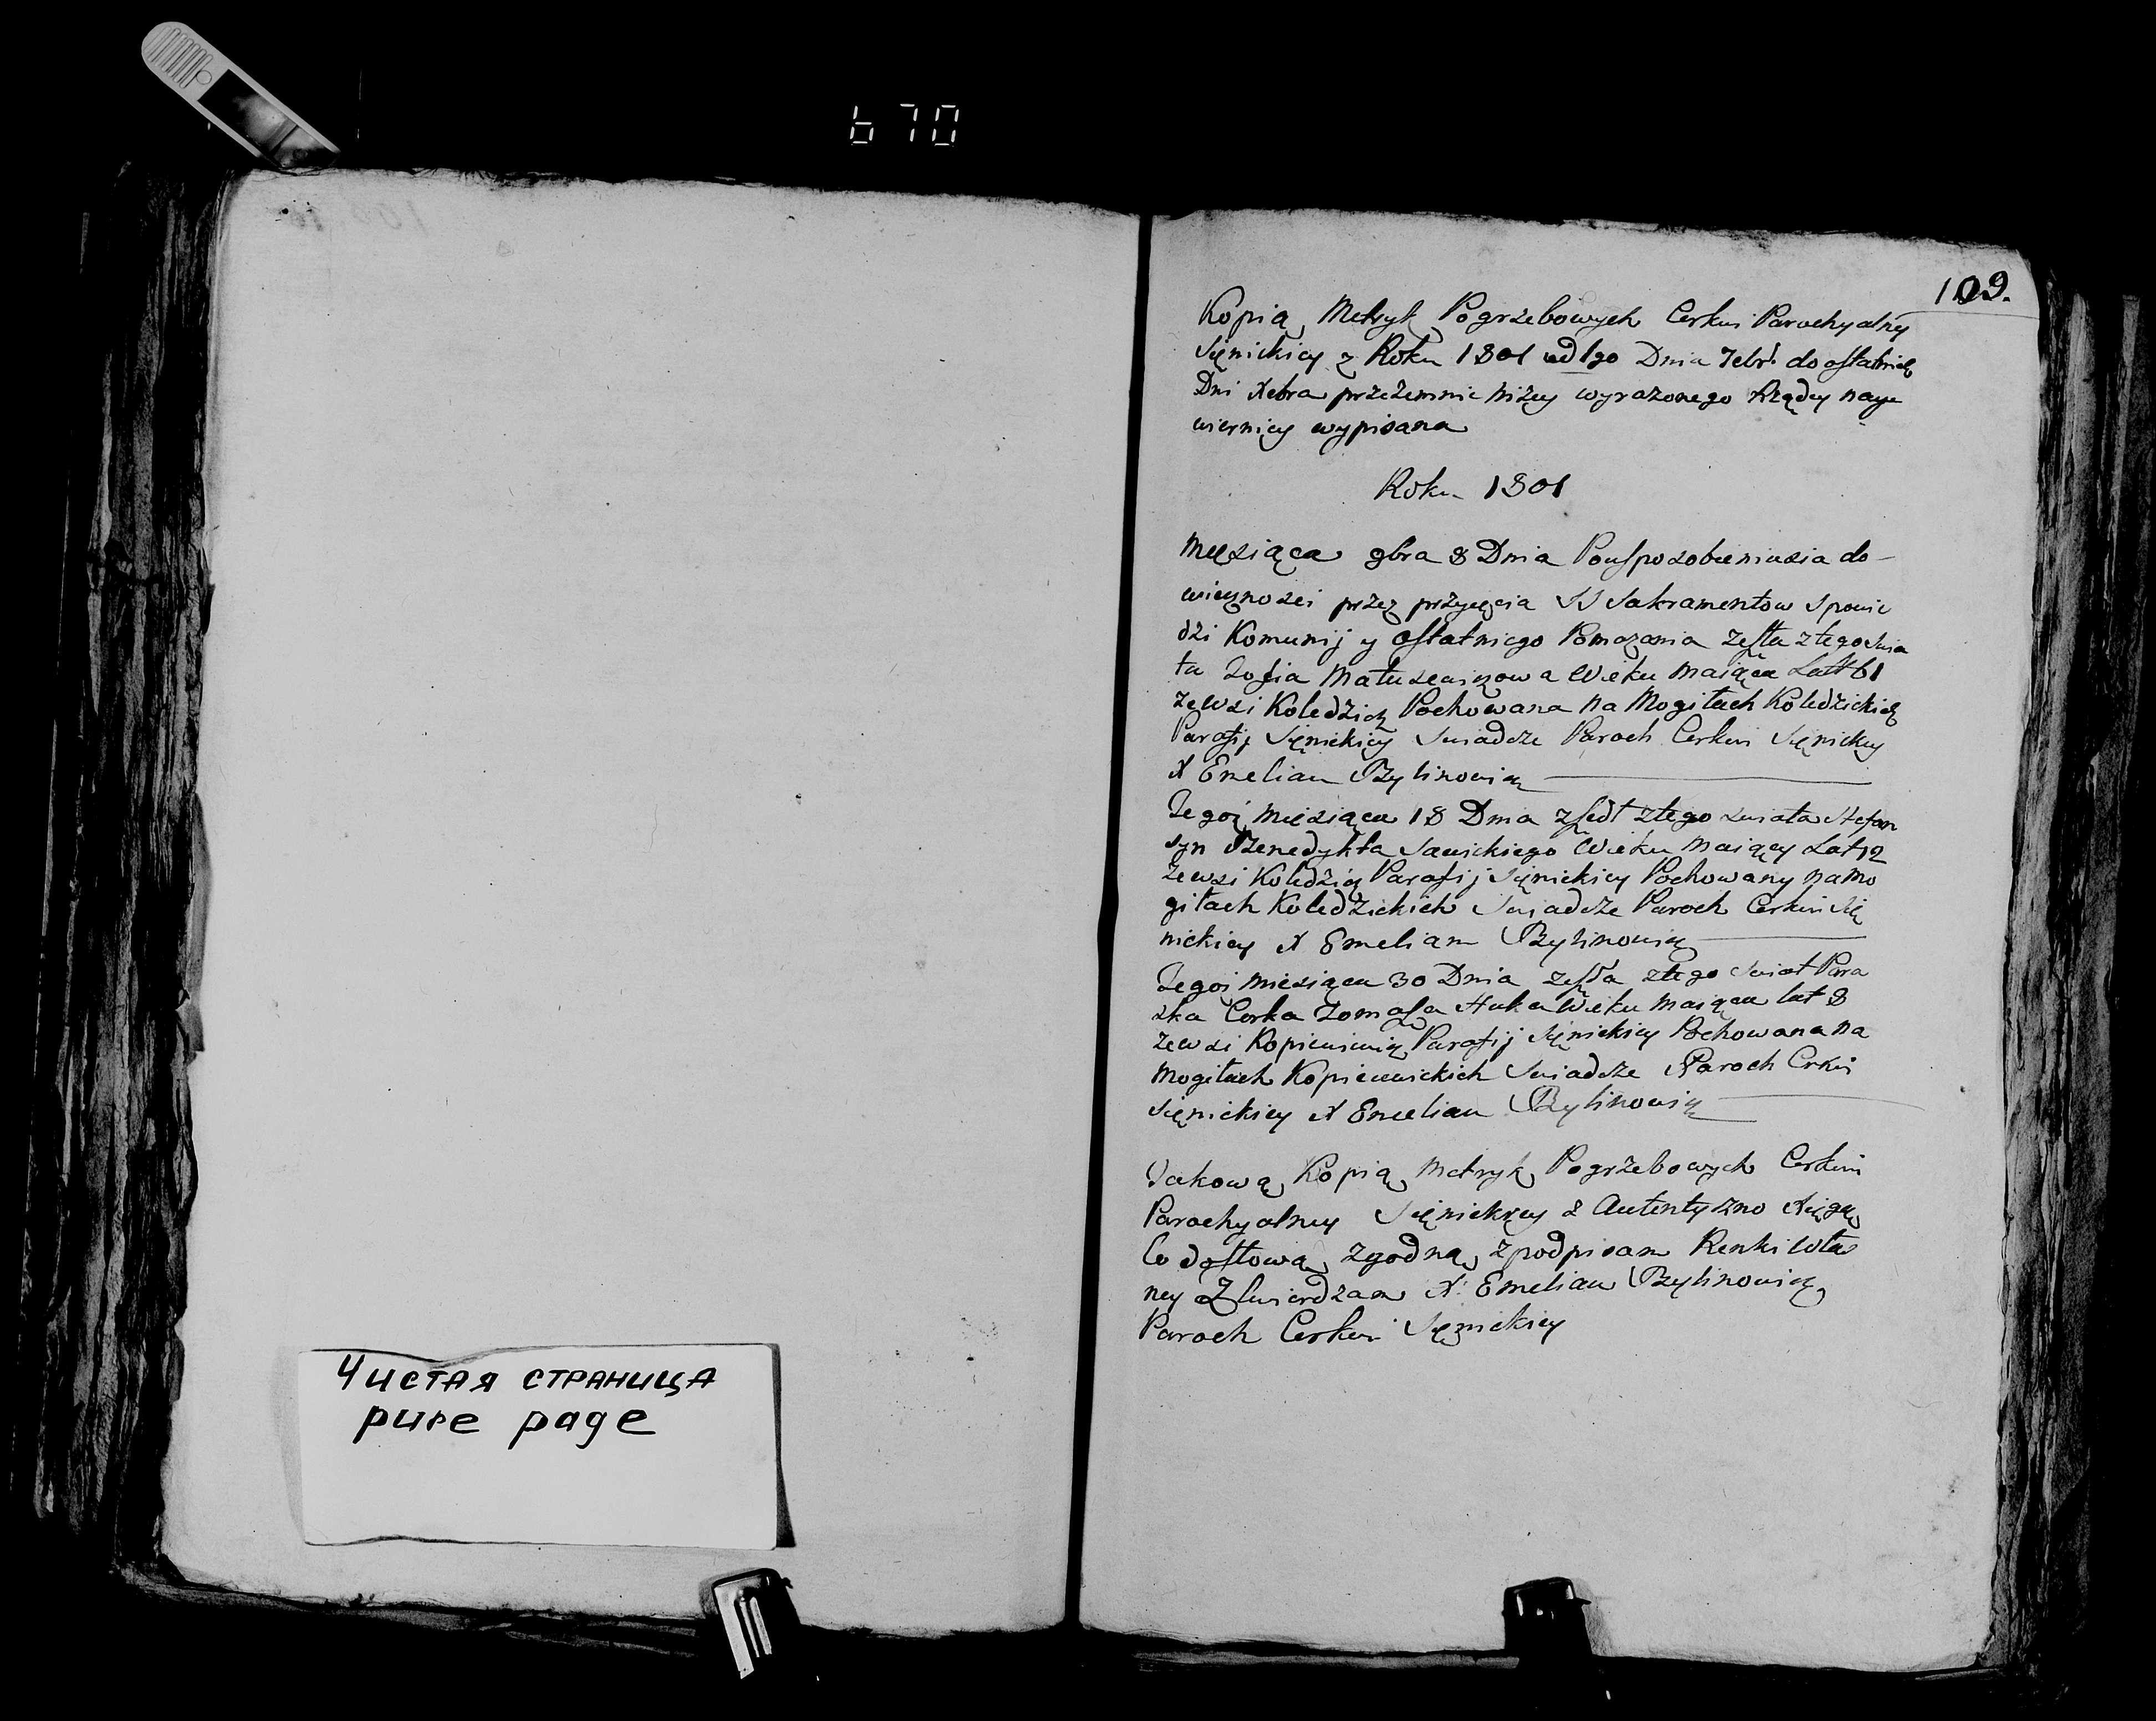 670
Чистая страница
pure page
109.
Kopią Metryk Pogrzebowych Cerkwi Parochyalney
Sięnickiey z Roku 1801 od 1go Dnia 7bra do ostatnich
Dni Xebra przezemnie niżey wyrażonego Rządcy nay
wierniey wypisana
Roku 1801
Mięsiąca 9bra 8 Dnia Pouspozobieniusia do-
wiecznosci przez przyięcia SS Sakramentow Spowie
dzi Komunij y ostatniego Pomazania zeszła z tego swia
ta Zofia Matusewiczowa Wieku maiąca Latt 61
zewsi Koledzicz Pochowana na Mogiłach Koledzickich
Parafij Sięnickiey Swiadcze Paroch Cerkwi Sięnickiey
X Emelian Bylinowicz
Tegoż miesiąca 18 Dnia zszedł ztego swiata Stefan
syn Benedykta Sawickiego Wieku maiący Lat 12
zewsi Koledzicz Parafij Sięnickiey Pochowany na mo
giłach Koledzickich Swiadcze Paroch Cerkwi Się
nickiey X Emelian Bylinowicz
Tegoż miesiąca 30 Dnia zeszła ztego swiat Para
ska Corka Tomasza Huka Wieku maiąca lat 8
zewsi Kopiewicz Parafij Sięnickiey Pochowana na
Mogiłach Kopiewickich Swiadcze Paroch Crkwi
Sięnickiey X Emelian Bylinowicz
Takową Kopią Metryk Pogrzebowych Cerkwi
Parochyalney Sięnickiey z Autentyczno Xięgą
Co do słowa zgodną z podpisam Renki włas
ney Ztwierdzam X: Emelian Bylinowicz
Paroch Cerkwi Sięnickiey